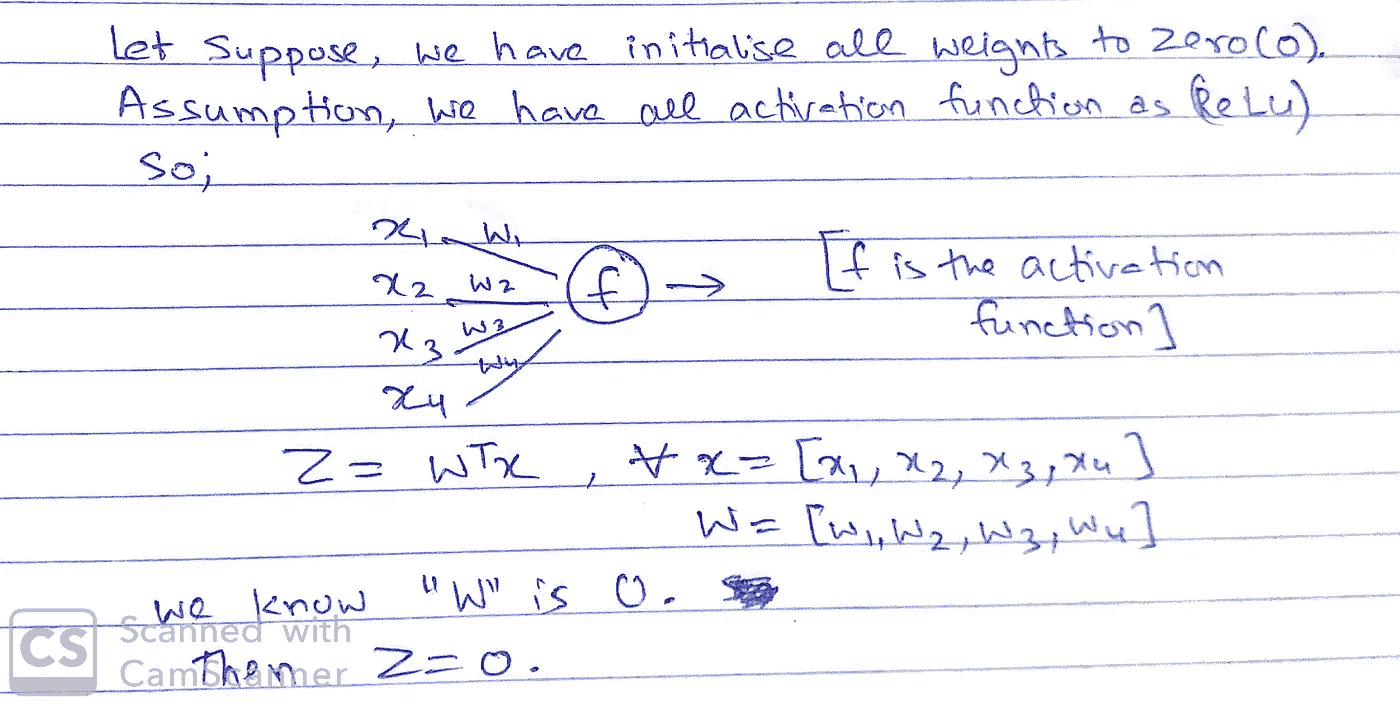 Let Suppose, we have initialise all weights to zero(0).
Assumption, we have all activation function as (ReLu)
So;
x1 w1
x2 w2
f → [f is the activation
function]
x3 w3
w4
x4
Z = WTx , ∀ x = [x1, x2, x3, x4]
W = [w1, w2, w3, w4]
we know "W" is 0.
Then Z=0.
CS Scanned with
CamScanner